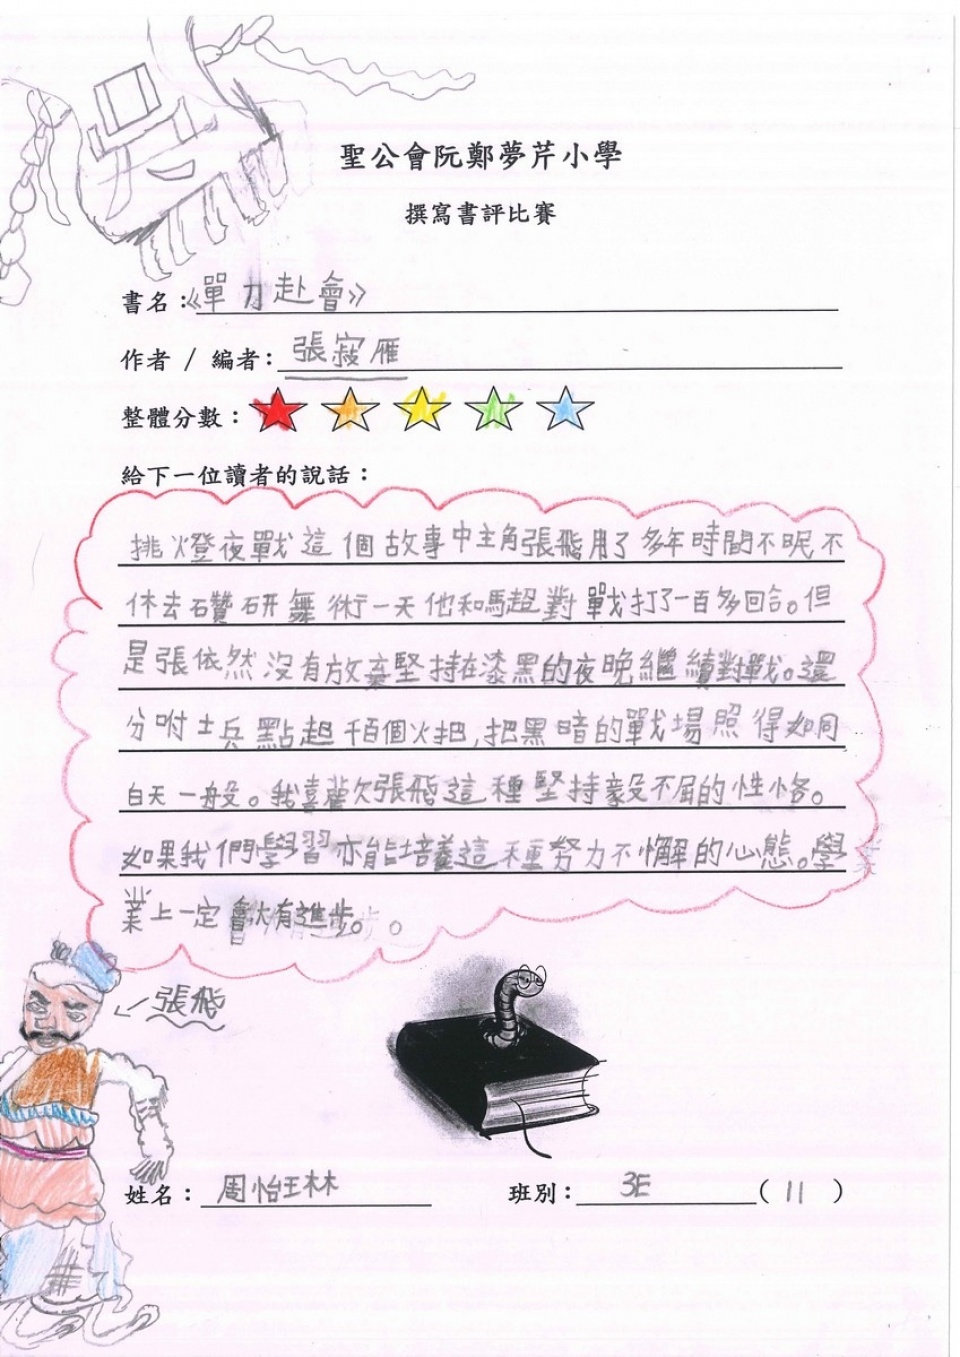 聖公會阮鄭夢芹小學
撰寫書評比賽
書名：《單刀赴會》
作者 / 編者：張寂雁
整體分數：
給下一位讀者的說話：
挑燈夜戰這個故事中主角張飛用了多年時間不眠不
休去礸研舞術一天他和馬超對戰打了一百多回合。但
是張依然沒有放棄堅持在漆黑的夜晚繼續對戰。還
分咐士兵點起千百個火把,把黑暗的戰場照得如同
白天一般。我喜歡張飛這種堅持毅不屈的性格。
如果我們學習亦能培養這種努力不懈的心態。學
業上一定會大有進步。
張飛
姓名：周怡琳
班別：3E (11)